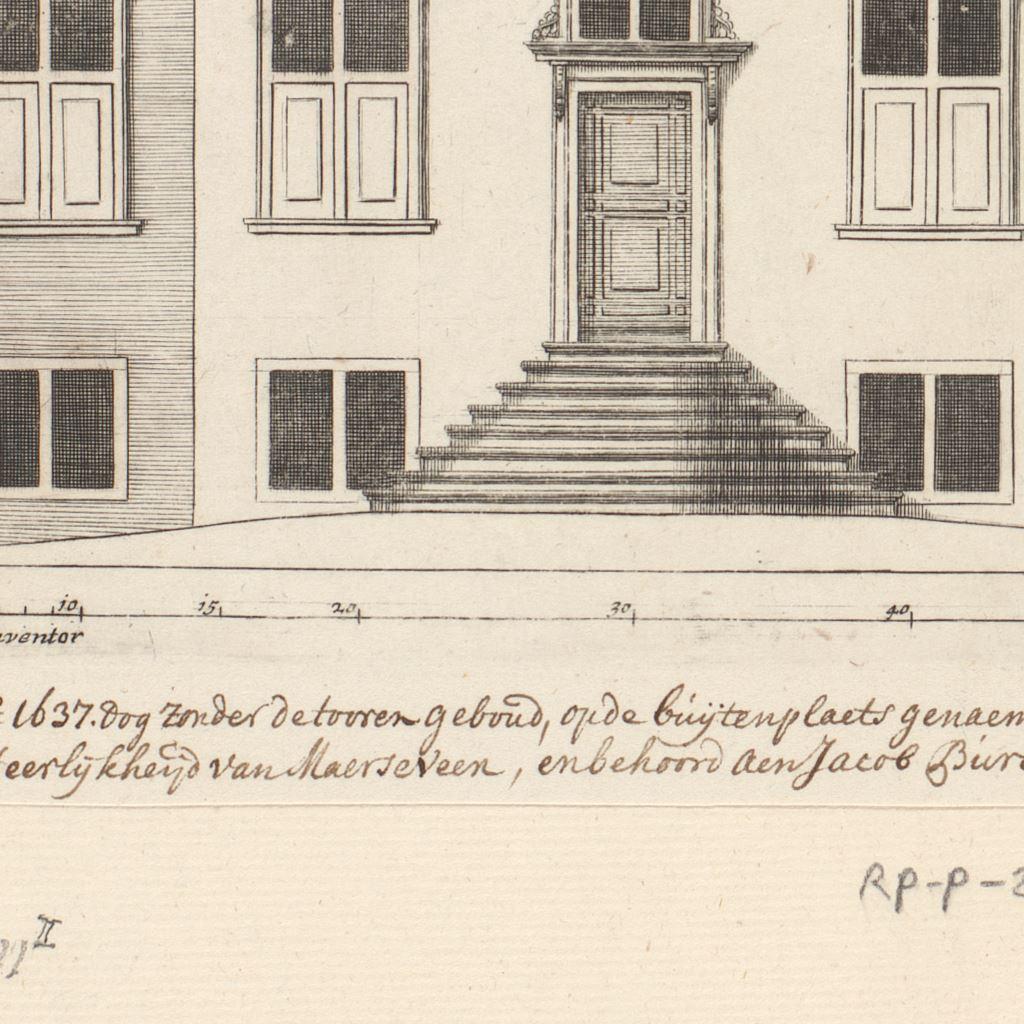 10 15 20 30 40
nventor
1637. dog zonder de tooren geboud, op de buijtenplaets genaem
eerlijkheijd van Maerseveen, en behoord aen Jacob Bur
RP-P-2
II